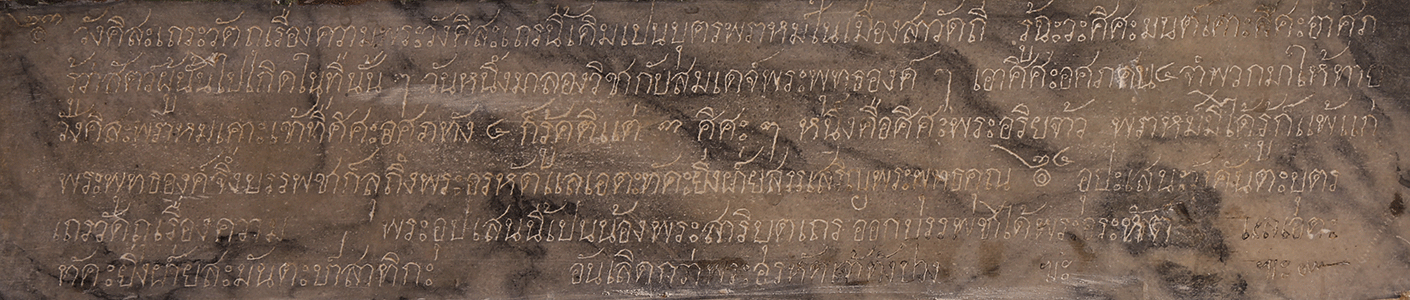 วังคีสะเถระวัตถุเรื่องความ พระวังคีสะเถรนี้เดิมเปนบุตรพราหมในเมืองสาวัตถี รู้ฉะวะศีศะมนต์เคาะศีศะอาศภ
รู้ว่าสัตว์ผู้นั้นไปเกิดในที่นั้น ๆ วันหนึ่งมาลองวิชากับสมเดจ์พระพุทธองค์ ๆ เอาศีศะอศภ ๔ จำพวกมาให้ทาย
วังคีสะพราหมเคาะเจ้าที่ศีศะอศภทั้ง ๔ ก็รู้คติแต่ ๓ ศีศะ ๆ หนึ่งคือศีศะพระอริยจ้าว พราหมมิได้รู้ก็แพ้แก่
พระพุทธองค์จึ่งบรรพชาก็ลุถึงพระอรหตแลเอตะทคะยิ่งฝ่ายสรรเสริญพระพุทธคุณ ๏ อุปะเสนะวังคันตะบุตร
เถรวัตถุเรื่องความ พระอุปเสนนี้เปนน้องพระสาริบุตเถร ออกบรรพชาได้พระอระหัต
ทัคะยิ่งฝ่ายสะมันตะปาสาทิกะ อันเลิดกว่าพระอรหัตทั้งปวง